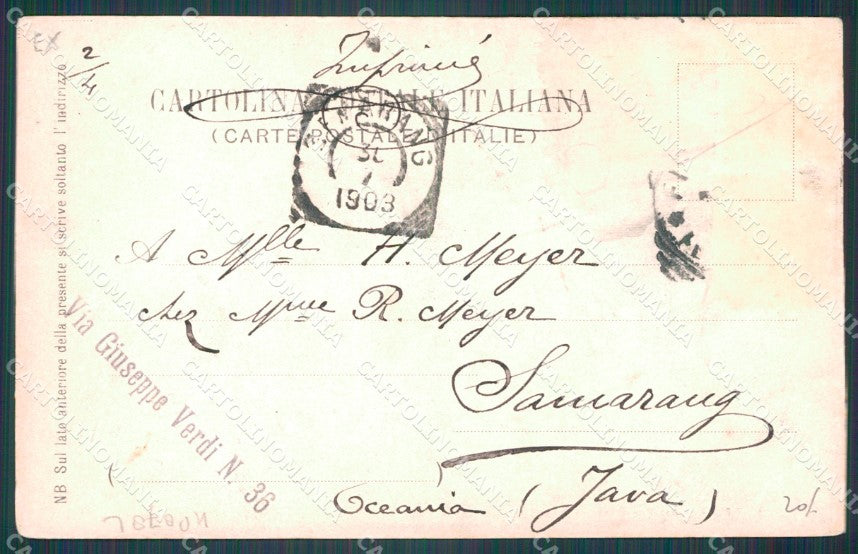 2/4
Imprimé
CARTOLINA POSTALE ITALIANA
(CARTE POSTALE D'ITALIE)
SEMARANG
1903
A Mlle H. Meyer
chez Mme R. Meyer
Samarang
Oceania (Java)
Via Giuseppe Verdi N. 36
NB Sul lato anteriore della presente si scrive soltanto l'indirizzo
CARTOLINOMANIA